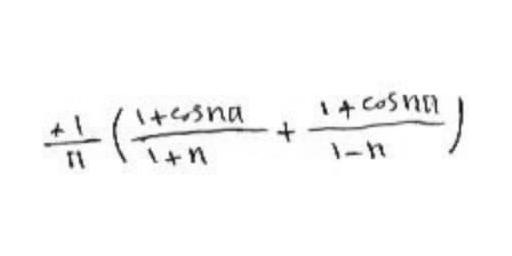 \frac{+1}{\pi} \left( \frac{1+\cos n\pi}{1+n} + \frac{1+\cos n\pi}{1-n} \right)